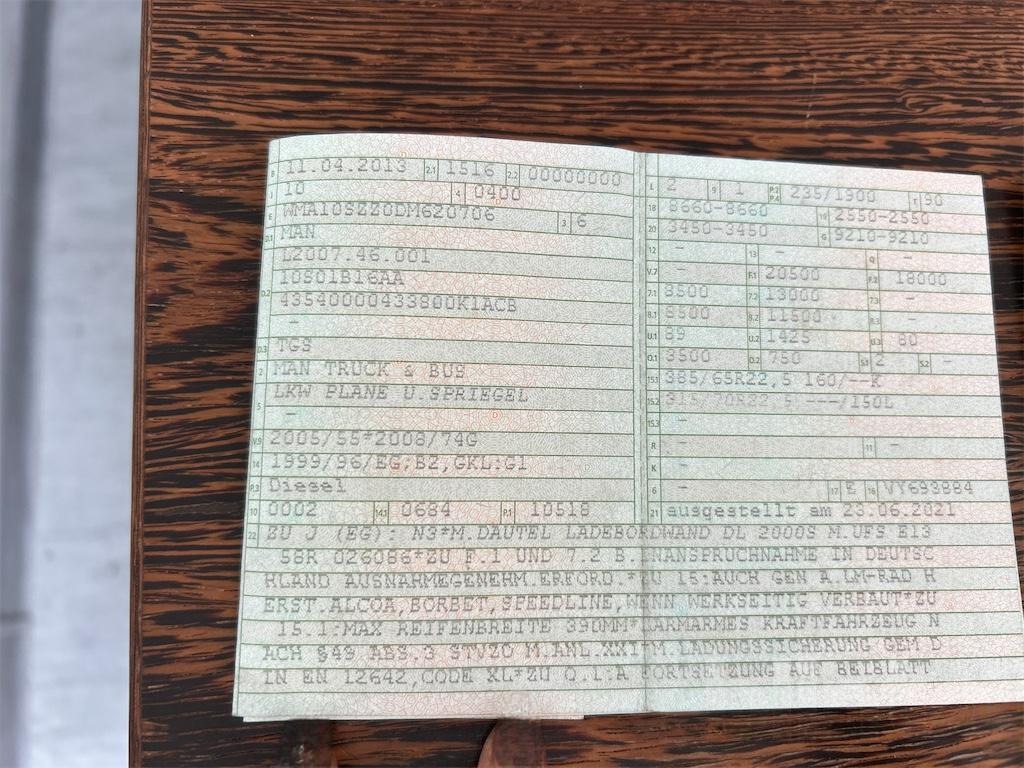 B 11.04.2013 2.1 1516 2.2 00000000
J 10 4 0400
E WMA10SZZ0DM620706 3 6
D.1 MAN
L2007.46.001
D.2 10S01B16AA
43540000433800K1ACB
-
D.3 TGS
2 MAN TRUCK & BUS
LKW PLANE U.SPRIEGEL
5 -
V.9 2005/55*2008/74G
14 1999/96/EG;B2,GKL:G1
P.3 Diesel
10 0002 14.1 0684 P.1 10518
L 2 9 1 P.2 P.4 235/1900 T 90
18 8660-8660 19 2550-2550
20 3450-3450 G 9210-9210
12 - 13 - Q -
V.7 - F.1 20500 F.2 18000
7.1 8500 7.2 13000 7.3 -
8.1 8500 8.2 11500 8.3 -
U.1 89 U.2 1425 U.3 80
O.1 3500 O.2 750 S.1 2 S.2 -
15.1 385/65R22,5 160/--K
15.2 315/70R22,5 ---/150L
15.3 -
R - 11 -
K -
6 - 17 E 16 VY693884
21 ausgestellt am 23.06.2021
22 ZU J (EG): N3*M.DAUTEL LADEBORDWAND DL 2000S M.UFS E13
58R 026086*ZU F.1 UND 7.2 B.INANSPRUCHNAHME IN DEUTSC
HLAND AUSNAHMEGENEHM.ERFORD.*ZU 15:AUCH GEN A.LM-RAD H
ERST.ALCOA,BORBET,SPEEDLINE,WENN WERKSEITIG VERBAUT*ZU
15.1:MAX REIFENBREITE 390MM*LARMARMES KRAFTFAHRZEUG N
ACH §49 ABS.3 STVZO M.ANL.XXI*M.LADUNGSSICHERUNG GEM D
IN EN 12642,CODE XL*ZU O.1:A FORTSETZUNG AUF BEIBLATT